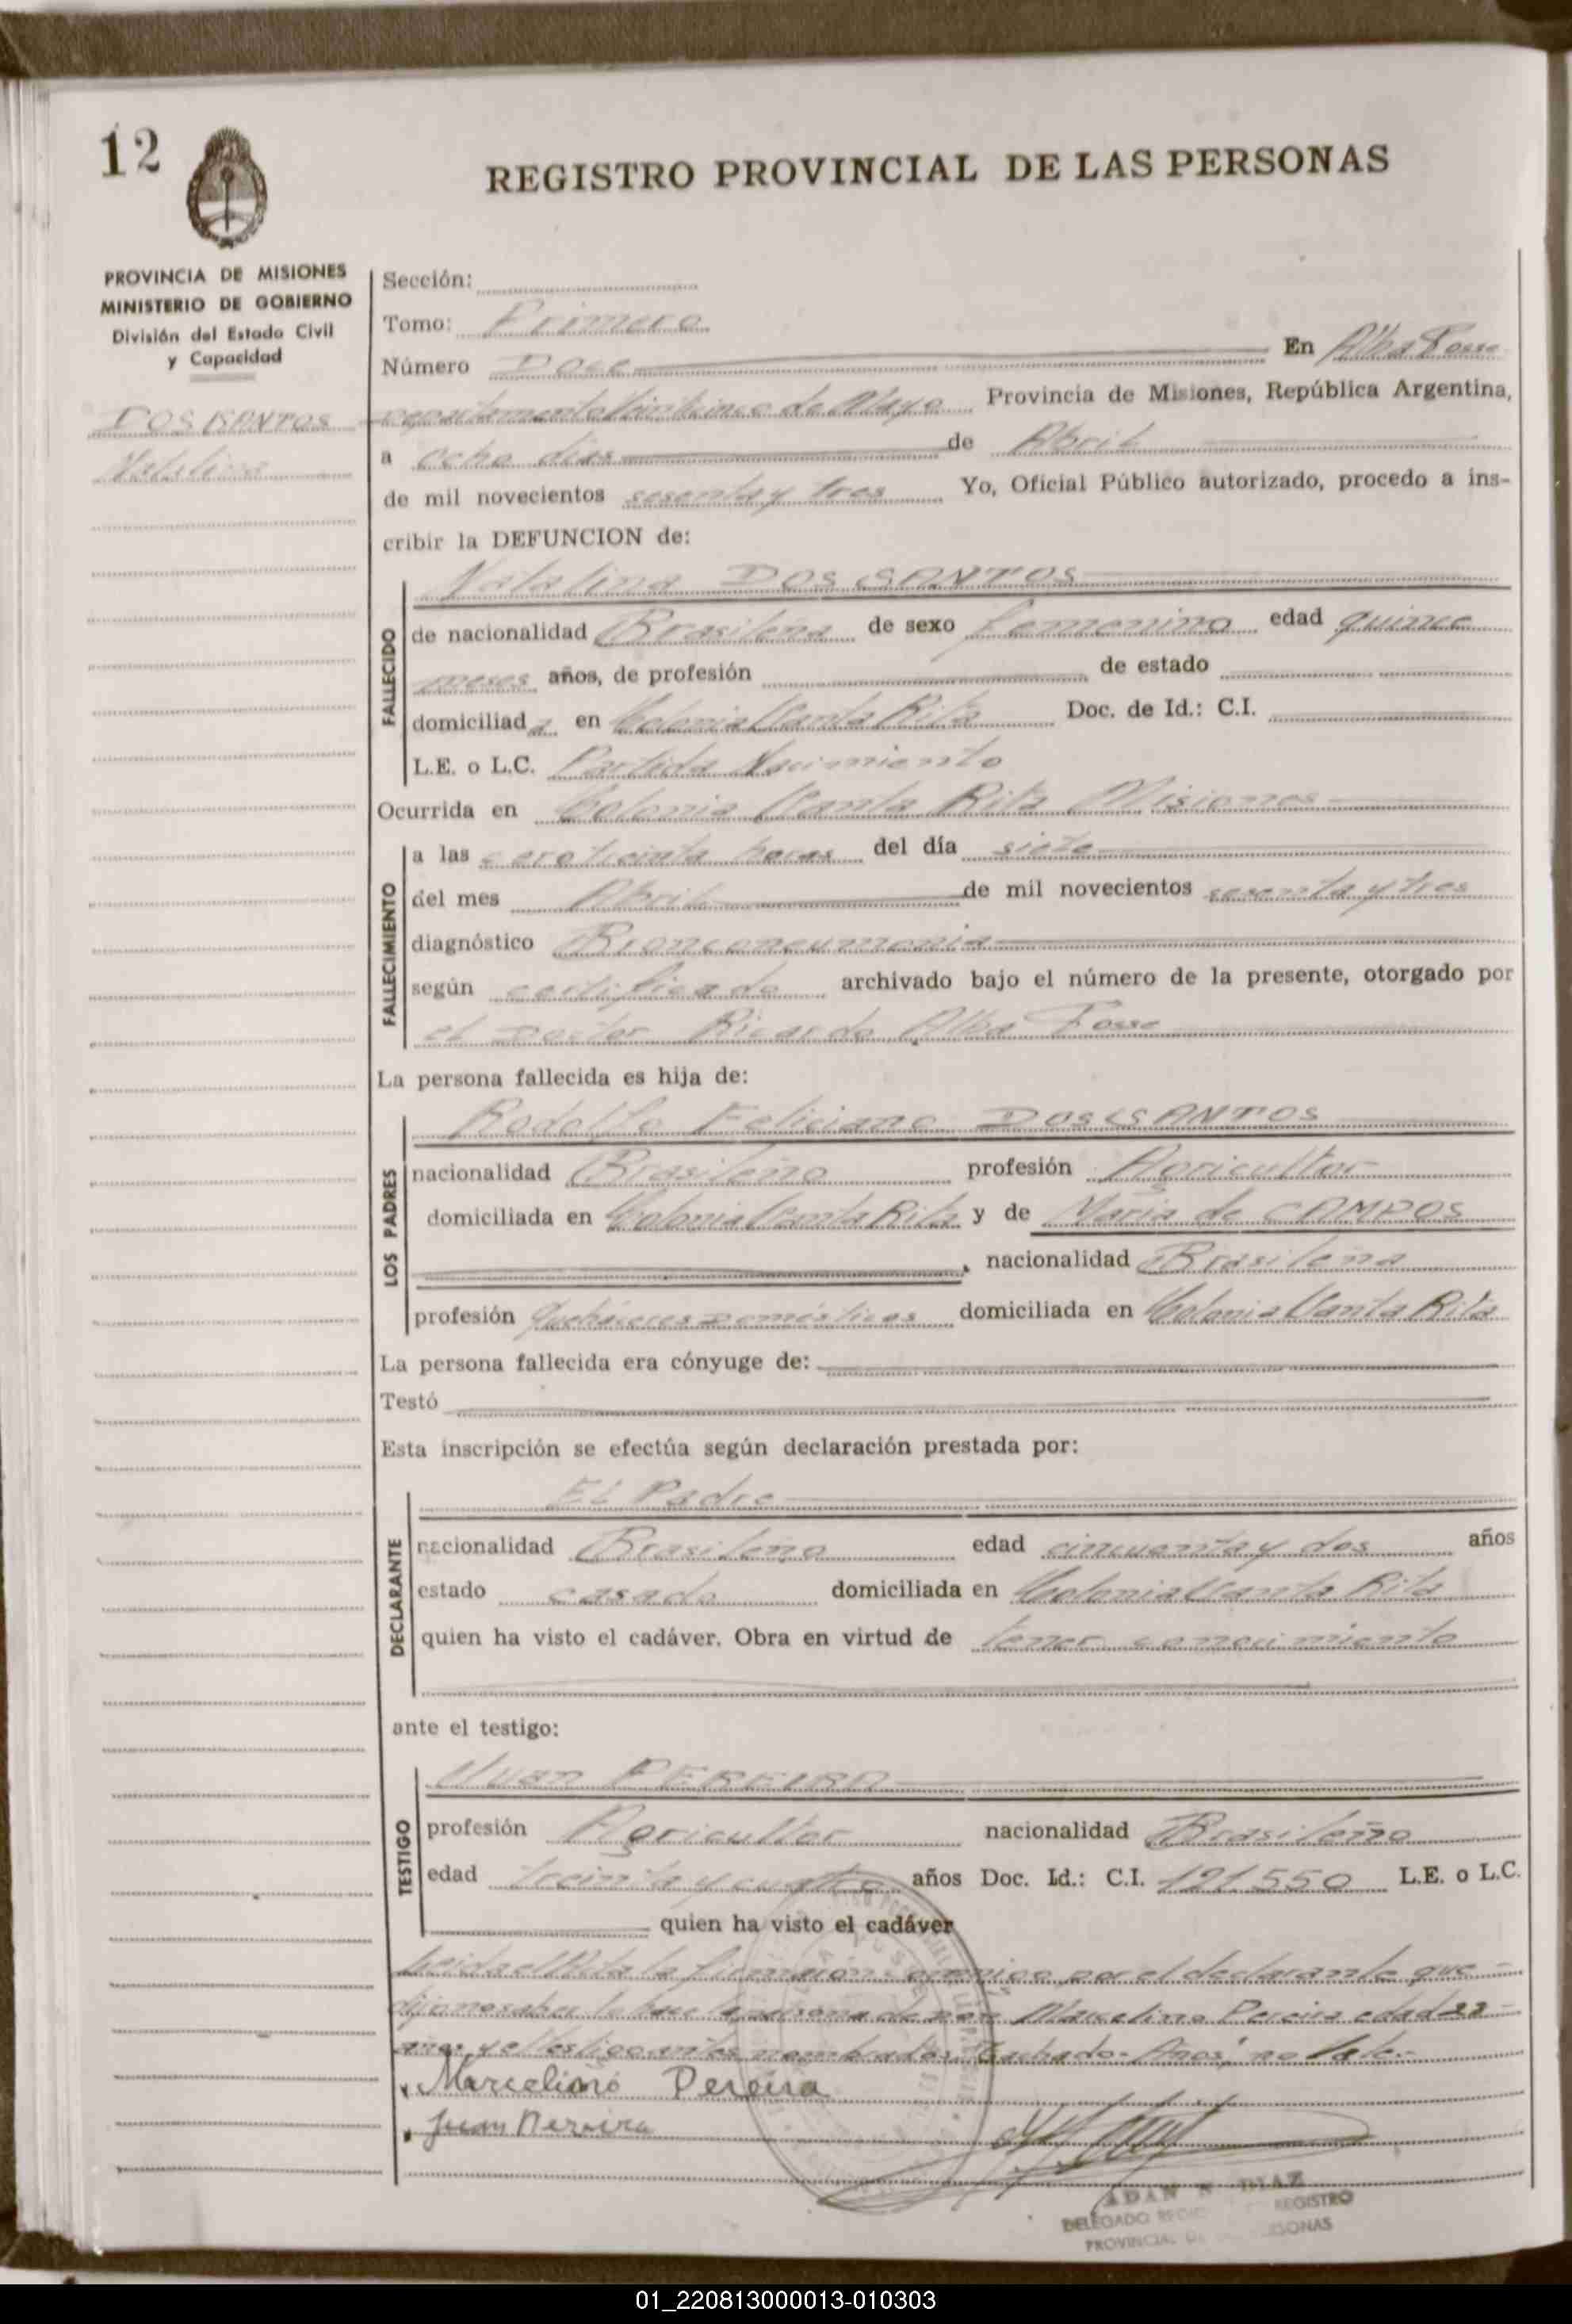 12
REGISTRO PROVINCIAL DE LAS PERSONAS
PROVINCIA DE MISIONES
MINISTERIO DE GOBIERNO
División del Estado Civil
y Capacidad
DOS SANTOS
Natalina
Sección:
Tomo: Primero
Número Doce En Alba Posse
departamento Veinticinco de Mayo Provincia de Misiones, República Argentina,
a ocho días de Abril
de mil novecientos sesenta y tres Yo, Oficial Público autorizado, procedo a ins-
cribir la DEFUNCION de:
FALLECIDO
Natalina DOS SANTOS
de nacionalidad Brasileña de sexo femenino edad quince
meses años, de profesión de estado
domiciliada en Colonia Santa Rita Doc. de Id.: C.I.
L.E. o L.C. Partida Nacimiento
Ocurrida en Colonia Santa Rita Misiones
FALLECIMIENTO
a las cero treinta horas del día siete
del mes Abril de mil novecientos sesenta y tres
diagnóstico Bronconeumonia
según certificado archivado bajo el número de la presente, otorgado por
el Doctor Ricardo Alba Posse
La persona fallecida es hija de:
LOS PADRES
Rodolfo Feliciano DOS SANTOS
nacionalidad Brasileño profesión Agricultor
domiciliada en Colonia Santa Rita y de Maria de CAMPOS
, nacionalidad Brasileña
profesión Quehaceres Domésticos domiciliada en Colonia Santa Rita
La persona fallecida era cónyuge de:
Testó
Esta inscripción se efectúa según declaración prestada por:
DECLARANTE
El Padre
nacionalidad Brasileño edad cincuenta y dos años
estado casado domiciliada en Colonia Santa Rita
quien ha visto el cadáver. Obra en virtud de tener conocimiento
ante el testigo:
TESTIGO
Juan PEREIRA
profesión Agricultor nacionalidad Brasileño
edad treinta y cuatro años Doc. Id.: C.I. 121.550 L.E. o L.C.
quien ha visto el cadáver
Leida el Acta la firman conmigo por el declarante que
dijo no saber lo hace la persona de don Marcelino Pereira edad 22
años y el testigo antes nombrados. Tachado-Años, no vale.
Marcelino Pereira
Juan Pereira
ADAN N DIAZ
DELEGADO REGISTRO
PROVINCIAL DE PERSONAS
01_220813000013-010303